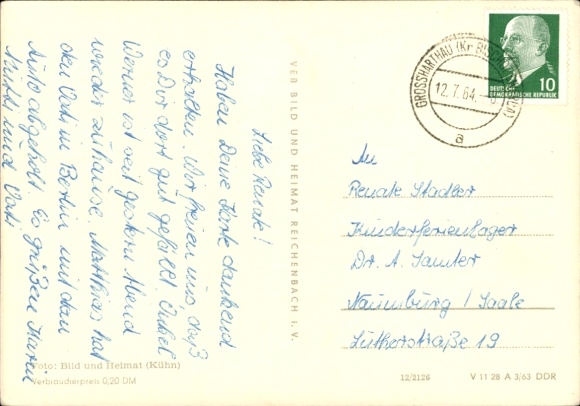 Liebe Renate!
Haben Deine Karte dankend
erhalten. Wir freuen uns daß
es Dir dort gut gefällt. Onkel
Werner ist seit gestern Abend
wieder zuhause. Matthias hat
den Vati in Berlin mit dem
Auto abgeholt. Es grüßen Karin
Mutti und Vati
VEB BILD UND HEIMAT REICHENBACH i. V.
Foto: Bild und Heimat (Kühn)
Verbraucherpreis 0,20 DM
GROSSHARTHAU (Kr
12.7.64.
a
10
DEUTSCHE
DEMOKRATISCHE REPUBLIK
An
Renate Stadler
Kinderferienlager
Dr. A. Samter
Naumburg / Saale
Lutherstraße 19
12/2126
V 11 28 A 3/63 DDR